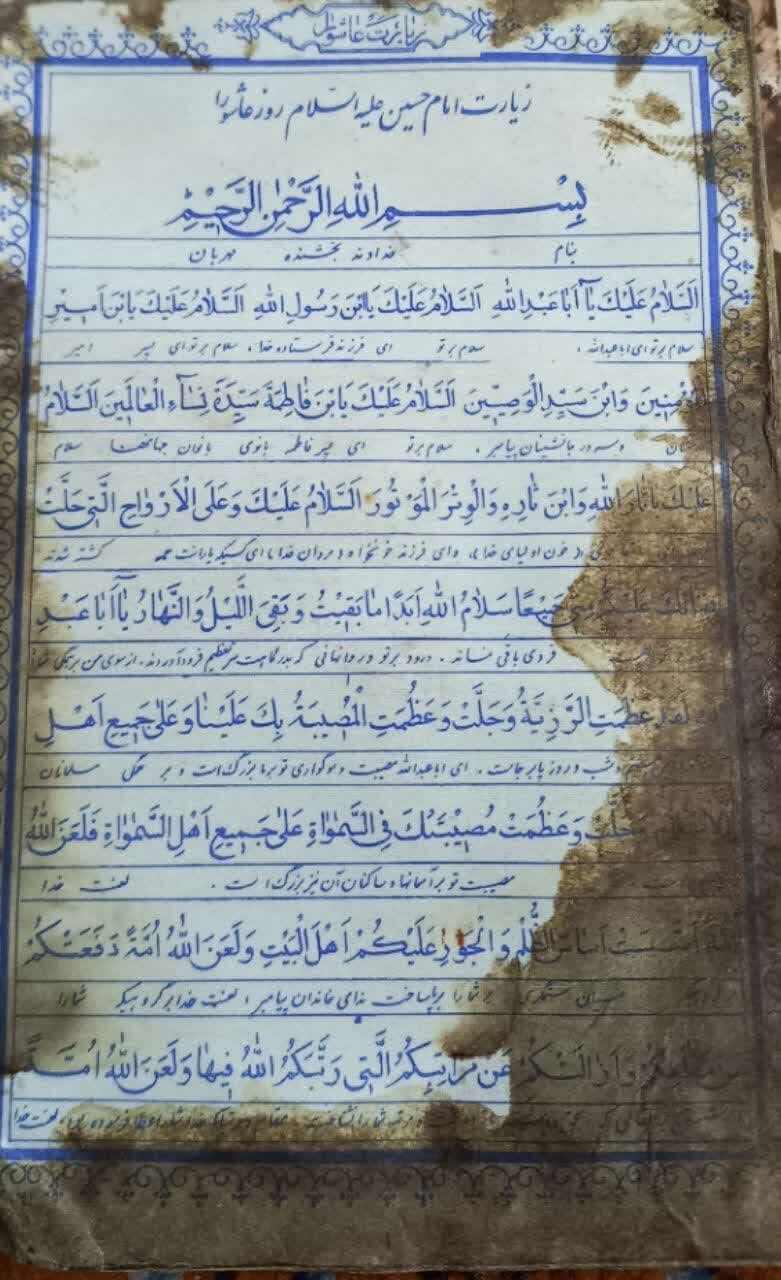 زیارت عاشورا
زیارت امام حسین علیه السلام روز عاشورا
بِسْمِ اللهِ الرَّحْمٰنِ الرَّحیٖمِ
بنام خداوند بخشنده مهربان
اَلسَّلاٰمُ عَلَیْكَ یٰا اَبٰا عَبْدِ اللهِ اَلسَّلاٰمُ عَلَیْكَ یَابْنَ رَسُولِ اللهِ اَلسَّلاٰمُ عَلَیْكَ یَابْنَ اَمیٖرِ
سلام بر تو ای اباعبدالله . سلام بر تو ای فرزند فرستاده خدا ، سلام بر تو ای پسر امیر
وَابْنَ سَیِّدِ الْوَصِیّیٖنَ اَلسَّلاٰمُ عَلَیْكَ یَابْنَ فٰاطِمَةَ سَیِّدَةِ نِسٰاءِ الْعٰالَمیٖنَ اَلسَّلاٰمُ
جانشینان پیامبر . سلام بر تو ای پسر فاطمه بانوی بانوان جهانها سلام
عَلَیْكَ یٰا ثٰارَ اللهِ وَابْنَ ثٰارِهِ وَالْوِتْرَ الْمَوْتُورَ اَلسَّلاٰمُ عَلَیْكَ وَعَلَی الْاَرْوٰاحِ الَّتیٖ حَلَّتْ
خون اولیای خدا وای فرزند خونخواه مردان خدا ای کسیکه کشته شدند
جَمیٖعًا سَلاٰمُ اللهِ اَبَدًا مٰا بَقیٖتُ وَ بَقِیَ اللَّیْلُ وَالنَّهٰارُ یٰا اَبٰا عَبْدِ
فردی باقی نماند . درود بر تو و روانهائی که تعظیم فرود آوردند ، از سوی من
لَقَدْ عَظُمَتِ الرَّزِیَّةُ وَجَلَّتْ وَعَظُمَتِ الْمُصیٖبَةُ بِكَ عَلَیْنٰا وَعَلیٰ جَمیٖعِ اَهْلِ
شب و روز پابرجاست . ای اباعبدالله مصیبت و سوگواری تو بر ما بزرگ است و بر همگی مسلمانان
وَجَلَّتْ وَعَظُمَتْ مُصیٖبَتُكَ فِی السَّمٰوٰاةِ عَلیٰ جَمیٖعِ اَهْلِ السَّمٰوٰاةِ فَلَعَنَ اللهُ
مصیبت تو بر آسمانها و ساکنان آن نیز بزرگ است . لعنت خدا
اَسَّسَتْ اَسٰاسَ الظُّلْمِ وَالْجَوْرِ عَلَیْكُمْ اَهْلَ الْبَیْتِ وَلَعَنَ اللهُ اُمَّةً دَفَعَتْكُمْ
ستمگری بر شما را ساخت خاندان پیامبر ، لعنت خدا بر گروهیکه شما را
وَاَزٰالَتْكُمْ عَنْ مَرٰاتِبِكُمُ الَّتیٖ رَتَّبَكُمُ اللهُ فیٖهٰا وَلَعَنَ اللهُ اُمَّةً
خدا شما را عطا فرموده بود ، لعنت خدا